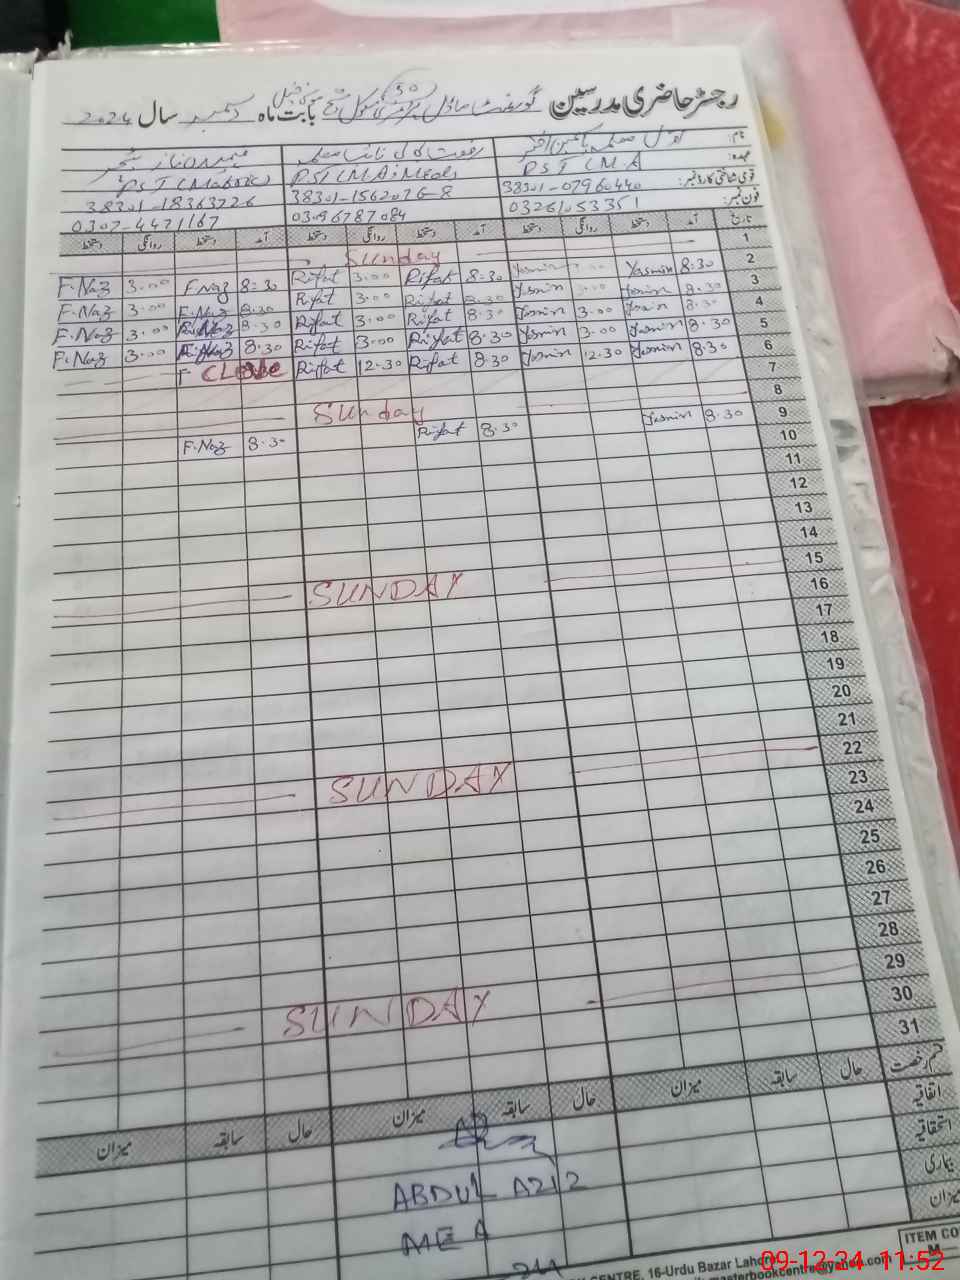 رجسٹر حاضری مدرسین گورنمنٹ ماڈل پرائمری سکول بابت ماہ دسمبر سال 2024
نام:
عہدہ: PST (M.A PST (M.A; M.Ed)
قومی شناختی کارڈ نمبر: 38301-07960440 38301-1562076-8 38301-18363726
فون نمبر: 03261053351 03096787084 0307-4471167
تاریخ آمد دستخط روانگی دستخط آمد دستخط روانگی دستخط آمد دستخط روانگی دستخط
1 Sunday
2 8:30 Yasmin Yasmin 8:30 Rifat 3.00 Rifat 8:30 F.Naz 3.00 F.Naz
3 8.30 Yasmin Yasmin 8.30 Rifat 3.00 Rifat 8.30 F.Naz 3.00 F.Naz
4 8.30 Yasmin 3.00 Yasmin 8.30 Rifat 3.00 Rifat 8.30 F.Naz 3.00 F.Naz
5 8.30 Yasmin 3.00 Yasmin 8.30 Rifat 3.00 Rifat 8.30 F.Naz 3.00 F.Naz
6 8.30 Yasmin 12.30 Yasmin 8.30 Rifat 12.30 Rifat CLOSE
7
8 Sunday
9 8.30 Yasmin 8.30 Rifat 8.30 F.Naz
10
11
12
13
14
15 SUNDAY
16
17
18
19
20
21
22 SUNDAY
23
24
25
26
27
28
29 SUNDAY
30
31
قسم رخصت حال سابقہ میزان حال سابقہ میزان حال سابقہ میزان
اتفاقیہ
استحقاقیہ
بیماری
میزان
ABDUL AZIZ
MEA
ITEM CO
M
CENTRE, 16-Urdu Bazar Lahore
masterbookcentre@yahoo.com
09-12-24 11:52